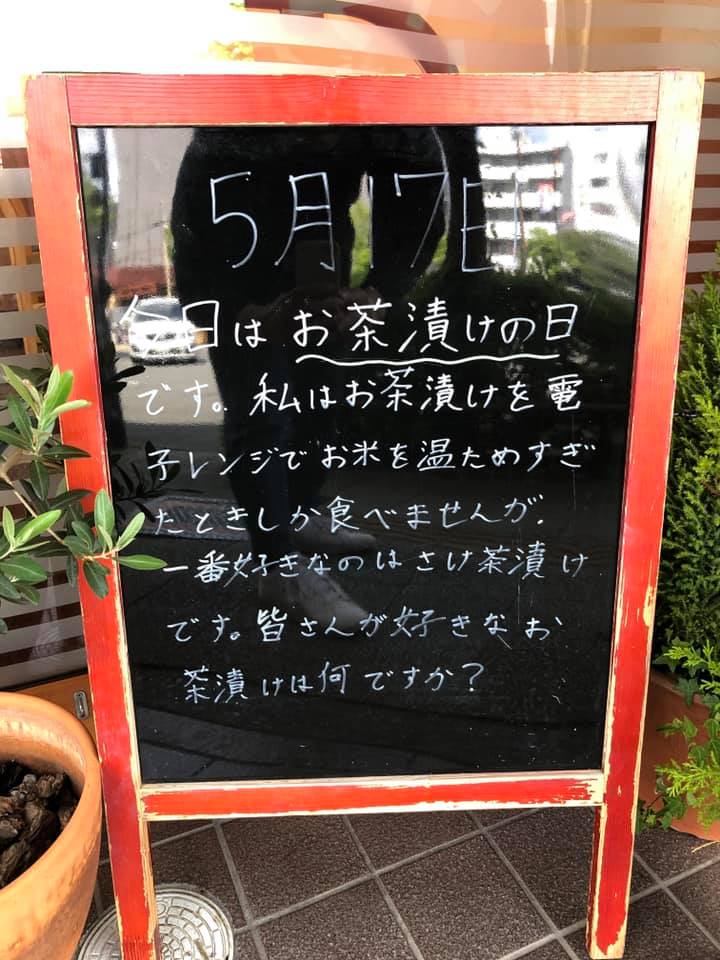 5月17日
今日はお茶漬けの日
です。私はお茶漬けを電
子レンジでお米を温ためすぎ
たときしか食べませんが、
一番好きなのはさけ茶漬け
です。皆さんが好きなお
茶漬けは何ですか？